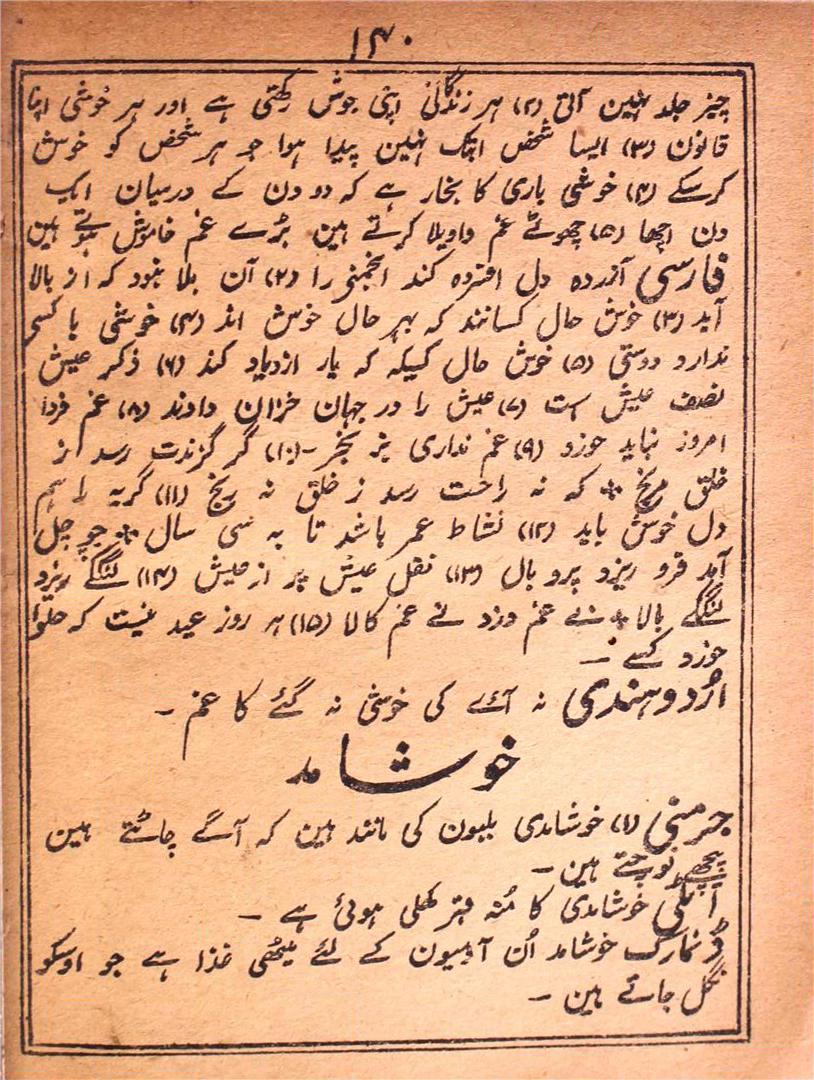 ۱۴۰
چیز جلد نہین آتی (۲) ہر زندگانی اپنی جوش رکھتی ہے اور ہر خوشی اپنا
قانون (۳) ایسا شخص ابتک نہین پیدا ہوا جو ہر شخص کو خوش
کرسکے (۴) خوشی باری کا بخار ہے کہ دو دن کے درمیان ایک
دن اچھا (۵) چھوٹے غم واویلا کرتے ہین بڑے غم خاموش ہوتے ہین
فارسی آزردہ دل افسردہ کند انجمنی را (۲) آن بلا نبود کہ از بالا
آید (۳) خوش حال کسانند کہ بہر حال خوش اند (۴) خوشی با کسی
ندارد دوستی (۵) خوش حال کسیکہ کہ یار ازدیاد کند (۶) ذکر عیش
نصف عیش است (۷) عیش را در جہان خزان دادند (۸) غم فردا
امروز نباید خورد (۹) غم نداری بز بخر - (۱۰) گر گزندت رسد از
خلق مرنج * کہ نہ راحت رسد ز خلق نہ رنج (۱۱) گریہ را ہم
دل خوش باید (۱۲) نشاط عمر باشد تا بہ سی سال * جو چل
آمد فرو ریزد پر و بال (۱۳) نقل عیش پر از عیش (۱۴) لنگکے زیر و
لنگکے بالا * نے غم دزد نے غم کالا (۱۵) ہر روز عید نیست کہ حلوا
خورد کسے ۔
اُردو ہندی نہ آئے کی خوشی نہ گئے کا غم ۔
خوشامد
جرمنی (۱) خوشامدی بلیون کی مانند ہین کہ آگے چاٹتے ہین
پیچھے نوچتے ہین ۔
اٹلی خوشامدی کا مُنہ قبر کھلی ہوئی ہے ۔
ڈنمارک خوشامد اُن آدمیون کے لئے میٹھی غذا ہے جو اوسکو
نگل جاتے ہین ۔